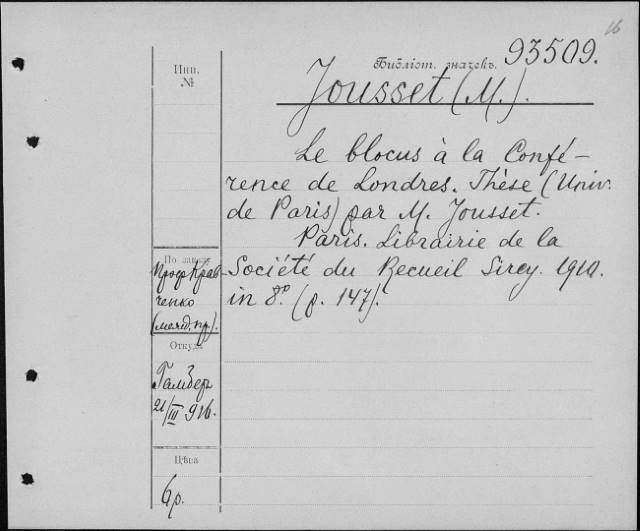 16
Инв.
№
Библіот. значекъ. 93509.
Jousset (M.).
Le blocus à la Confé-
rence de Londres. Thèse (Univ.
de Paris) par M. Jousset.
Paris. Librairie de la
Société du Recueil Sirey. 1910.
in 8º. (p. 147).
По заказу
Проф. Крав-
ченко
(межд. пр.).
Откуда
21/III 916.
Цѣна
6р.